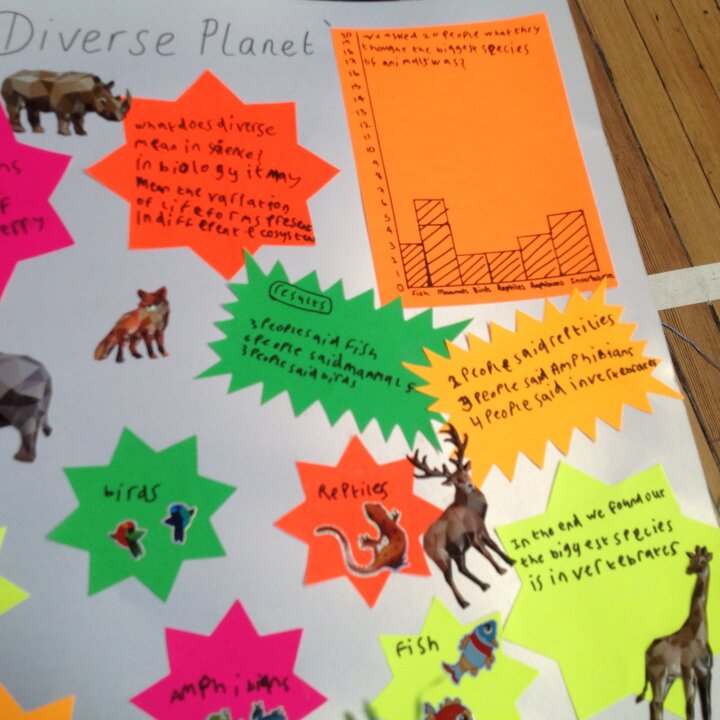 Diverse Planet
what does diverse
mean in science?
in biology it may
mean the variation
of life forms present
in different ecosystem
we asked 20 people what they
thought the biggest species
of animals was?
20
Fish Mammals Birds Reptiles Amphibians Invertebrates
results
3 People said fish
6 People said mammals
3 People said birds
2 People said reptilies
3 People said Amphibians
4 People said invertebrates
birds
Reptiles
In the end we found our
the biggest species
is invertebrates
Amphibians
Fish